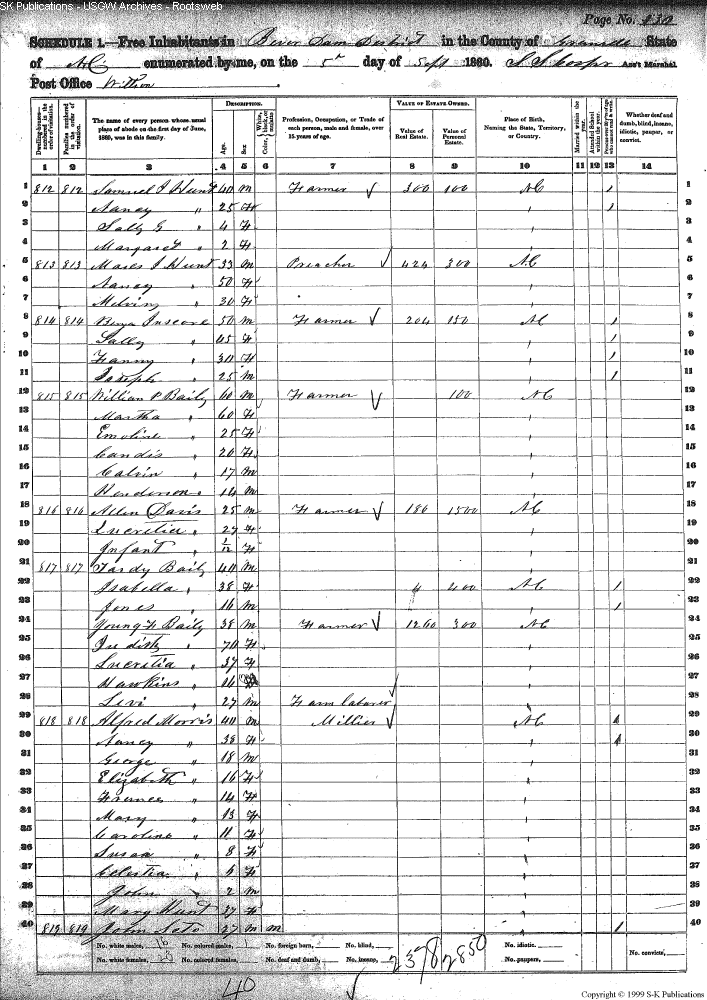 SK Publications - USGW Archives - Rootsweb
Page No.
SCHEDULE 1.—Free Inhabitants in Bever Dam District in the County of Granvile State
of NC enumerated by me, on the 5th day of Sept 1860. Ass't Marshal
Post Office Wilton
Dwelling-houses—numbered in the order of visitation.
Families numbered in the order of visitation.
The name of every person whose usual place of abode on the first day of June, 1860, was in this family.
DESCRIPTION.
Age.
Sex
Color, White, black, or mulatto.
Profession, Occupation, or Trade of each person, male and female, over 15 years of age.
VALUE OF ESTATE OWNED.
Value of Real Estate.
Value of Personal Estate.
Place of Birth, Naming the State, Territory, or Country.
Married within the year.
Attended School within the year.
Whether deaf and dumb, blind, insane, idiotic, pauper, or convict.
1 2 3 4 5 6 7 8 9 10 11 12 13 14
1 812 812 Samuel J Hunt 40 m Farmer 300 100 NC 1
2 Nancy " 25 F 2
3 Sally G " 4 F 3
4 Margaret " 2 F 4
5 813 813 Moses J Hunt 33 m Preacher 424 300 NC 5
6 Nancy " 50 F 6
7 " 30 F 7
8 814 814 Inscore 50 m Farmer 204 150 NC 8
9 Sally " 45 F 9
10 Fanny " 30 F 10
11 Joseph " 25 m 11
12 815 815 William P Baily 60 m Farmer 100 NC 12
13 Martha " 60 F 13
14 Emoline " 25 F 14
15 Candis " 20 F 15
16 Calvin " 17 m 16
17 Henderson " 14 m 17
18 816 816 Allen Davis 25 m Farmer 186 1500 NC 18
19 Lucritia " 27 F 19
20 Infant " F 20
21 817 817 Baily 40 m 21
22 Isabella " 38 F 4 400 NC 22
23 Jones " 16 m 23
24 Young H Baily 38 m Farmer 1260 300 NC 24
25 " 70 F 25
26 Lucritia " 37 F 26
27 Hawkins " 14 27
28 Levi " 27 m Farm laborer 28
29 818 818 Alfred Morris 40 m Millier NC 29
30 Nancy " 38 F 30
31 George " 18 m 31
32 Elizabeth " 16 F 32
33 Frances " 14 F 33
34 Mary " 13 F 34
35 Caroline " 11 F 35
36 Susan " 8 F 36
37 Celestia " 5 F 37
38 John " 2 m 38
39 Mary Hunt 37 F 39
40 819 819 John 27 m m 40
No. white males, 16 No. colored males, 1 No. foreign born, No. blind, No. idiotic.
No. white females, No. colored females, No. deaf and dumb, No. insane, 2378 2850 No. paupers, No. convicts,
40
Copyright © 1999 S-K Publications